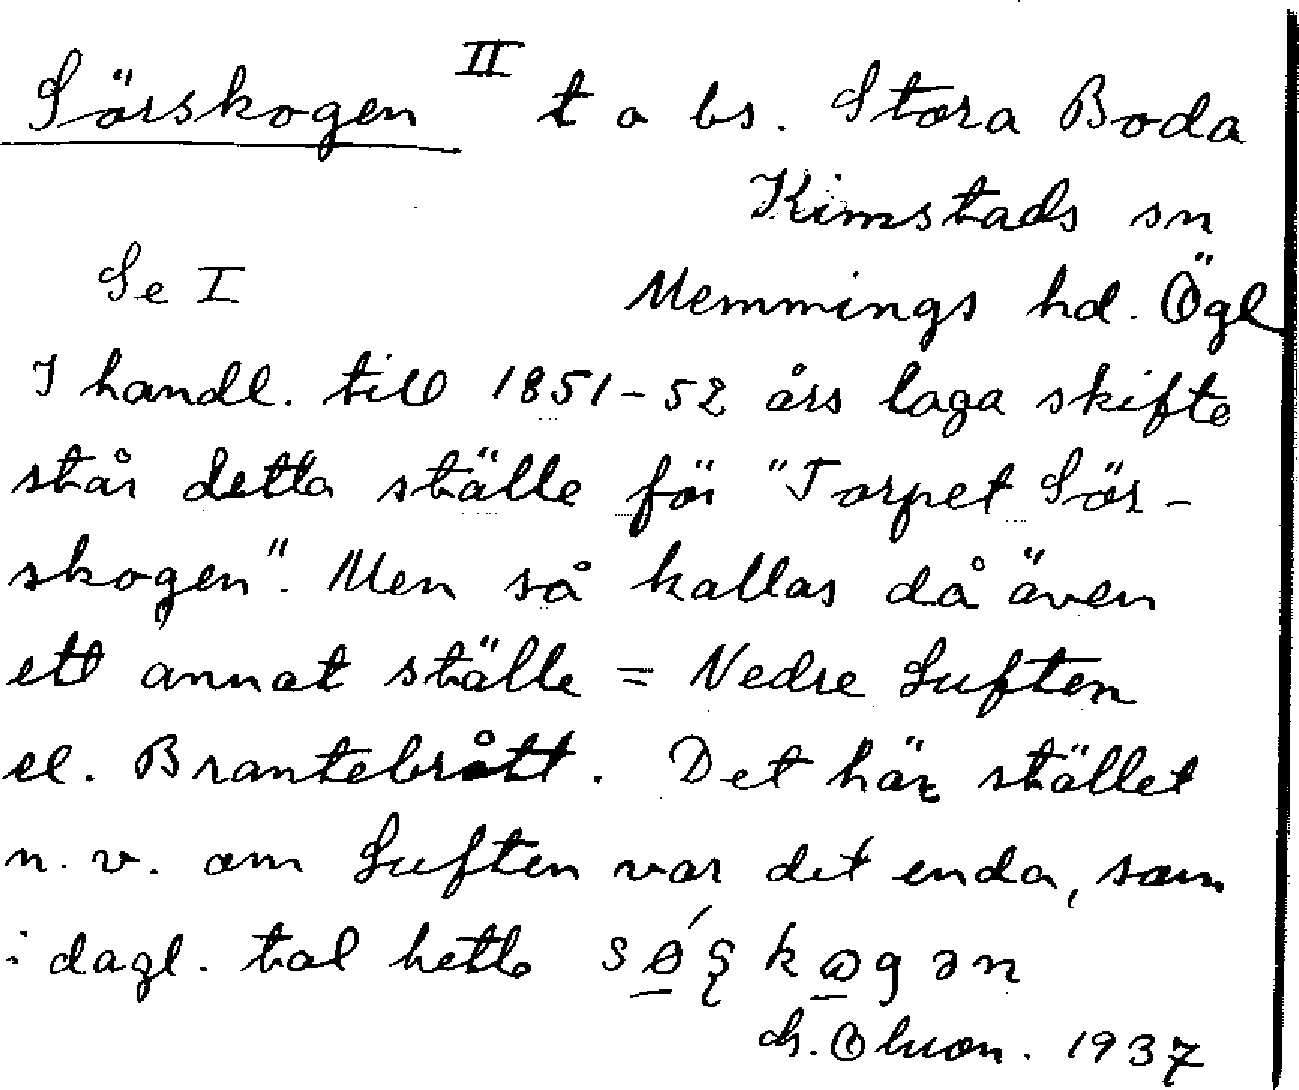 Sörskogen II t o bs. Stora Boda
Kimstads sn
Se I Memmings hd. Ögl
I handl. till 1851-52 års laga skifte
står detta ställe för "Torpet Sör-
skogen". Men så kallas då även
ett annat ställe = Nedre Luften
el. Brantebrått. Det här stället
n. v. om Luften var det enda, som
i dagl. tal hette
1937